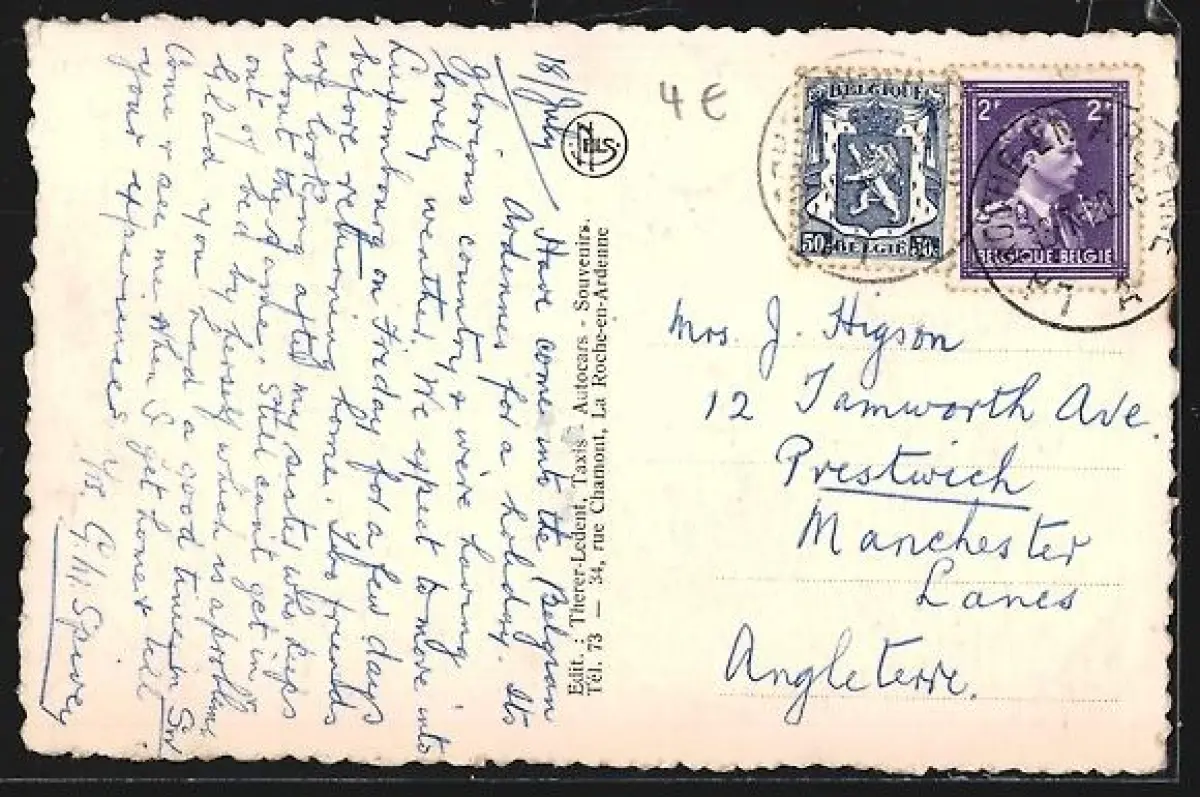 18/July Have come into the Belgian
Ardennes for a holiday. Its
glorious country & were having
lovely weather. We expect to move into
Luxembourg on Friday for a few days
before returning home. Two friends
are looking after my sister who keeps
about the same. Still can't get in or
out of bed by herself which is a problem.
Glad you had a good time in Sw
Come & see me when I get home & tell
your experiences.
G. W. Spivey
NELS
Edit. : Therer-Ledent, Taxis - Autocars - Souvenirs.
Tél. 73 — 34, rue Chamont, La Roche-en-Ardenne
4 €
BELGIQUE
50c 50c
BELGIË
2F 2F
BELGIQUE BELGIE
Mrs. J. Higson
12 Tamworth Ave.
Prestwich
Manchester
Lancs
Angleterre.